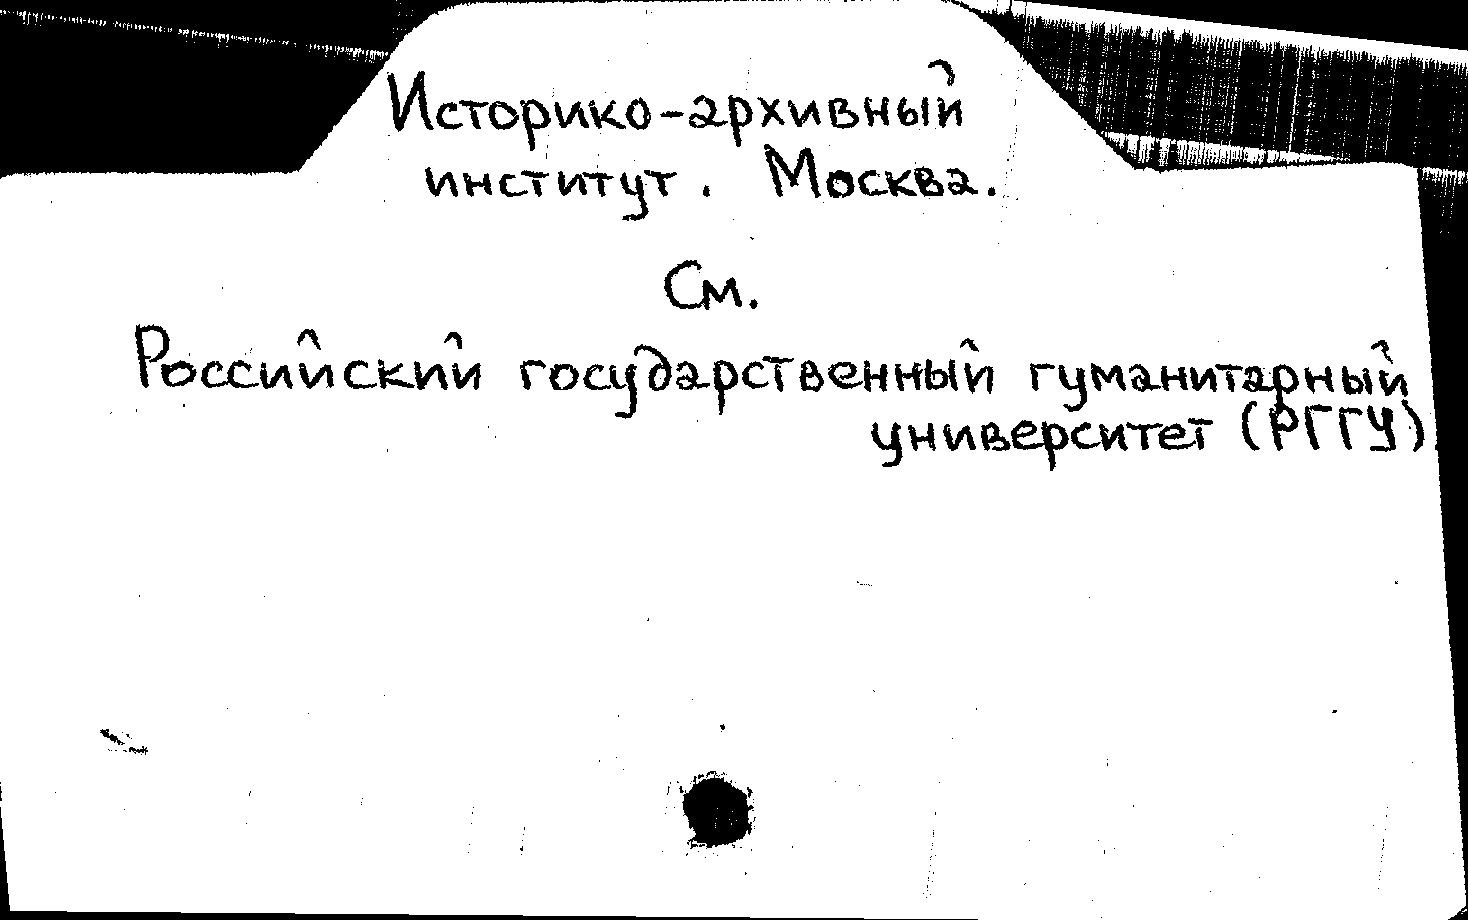 Историко-архивный
институт. Москва.
См.
Российский государственный гуманитарный
университет (РГГУ)